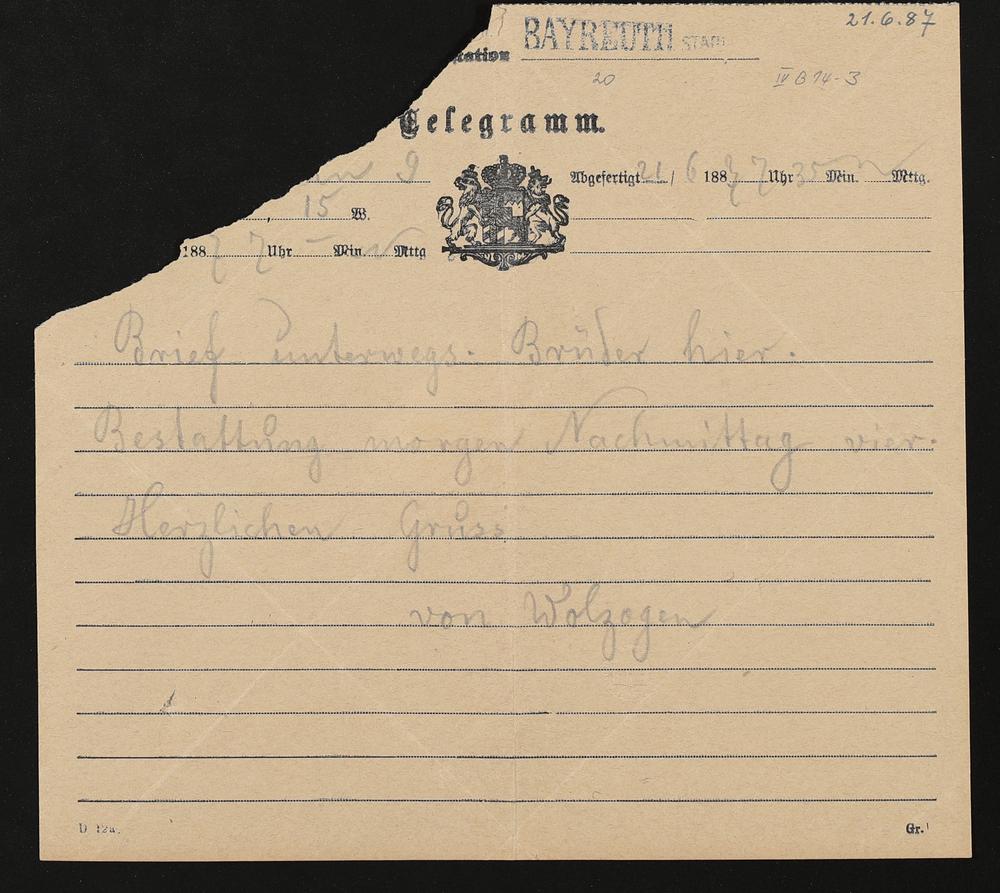 BAYREUTH STADT
21.6.87
20
IV B 14-3
Telegramm.
9
Abgefertigt 21/6 1887 7 Uhr 35 Min. Mttg.
15 W.
1887 7 Uhr Min. Mttg
Brief unterwegs. Brüder hier.
Bestattung morgen Nachmittag vier.
Herzlichen Gruss
von Wolzogen
D 12a.
Gr.